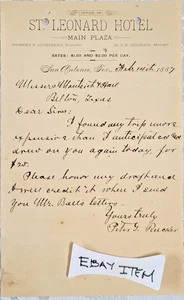 OFFICE OF
ST. LEONARD HOTEL
MAIN PLAZA
RATES: $1.50 AND $2.00 PER DAY.
San Antonio, Tex., Feb 14th 1887
Messrs Monteith &
Belton, Texas
Dear Sirs:
I found my trip more
expensive than I anticipated &
drew on you again today, for
$20.
Please honor my draft and
I will credit it when I send
you Mr. Balls letters.
Yours truly
Peter G.
EBAY ITEM